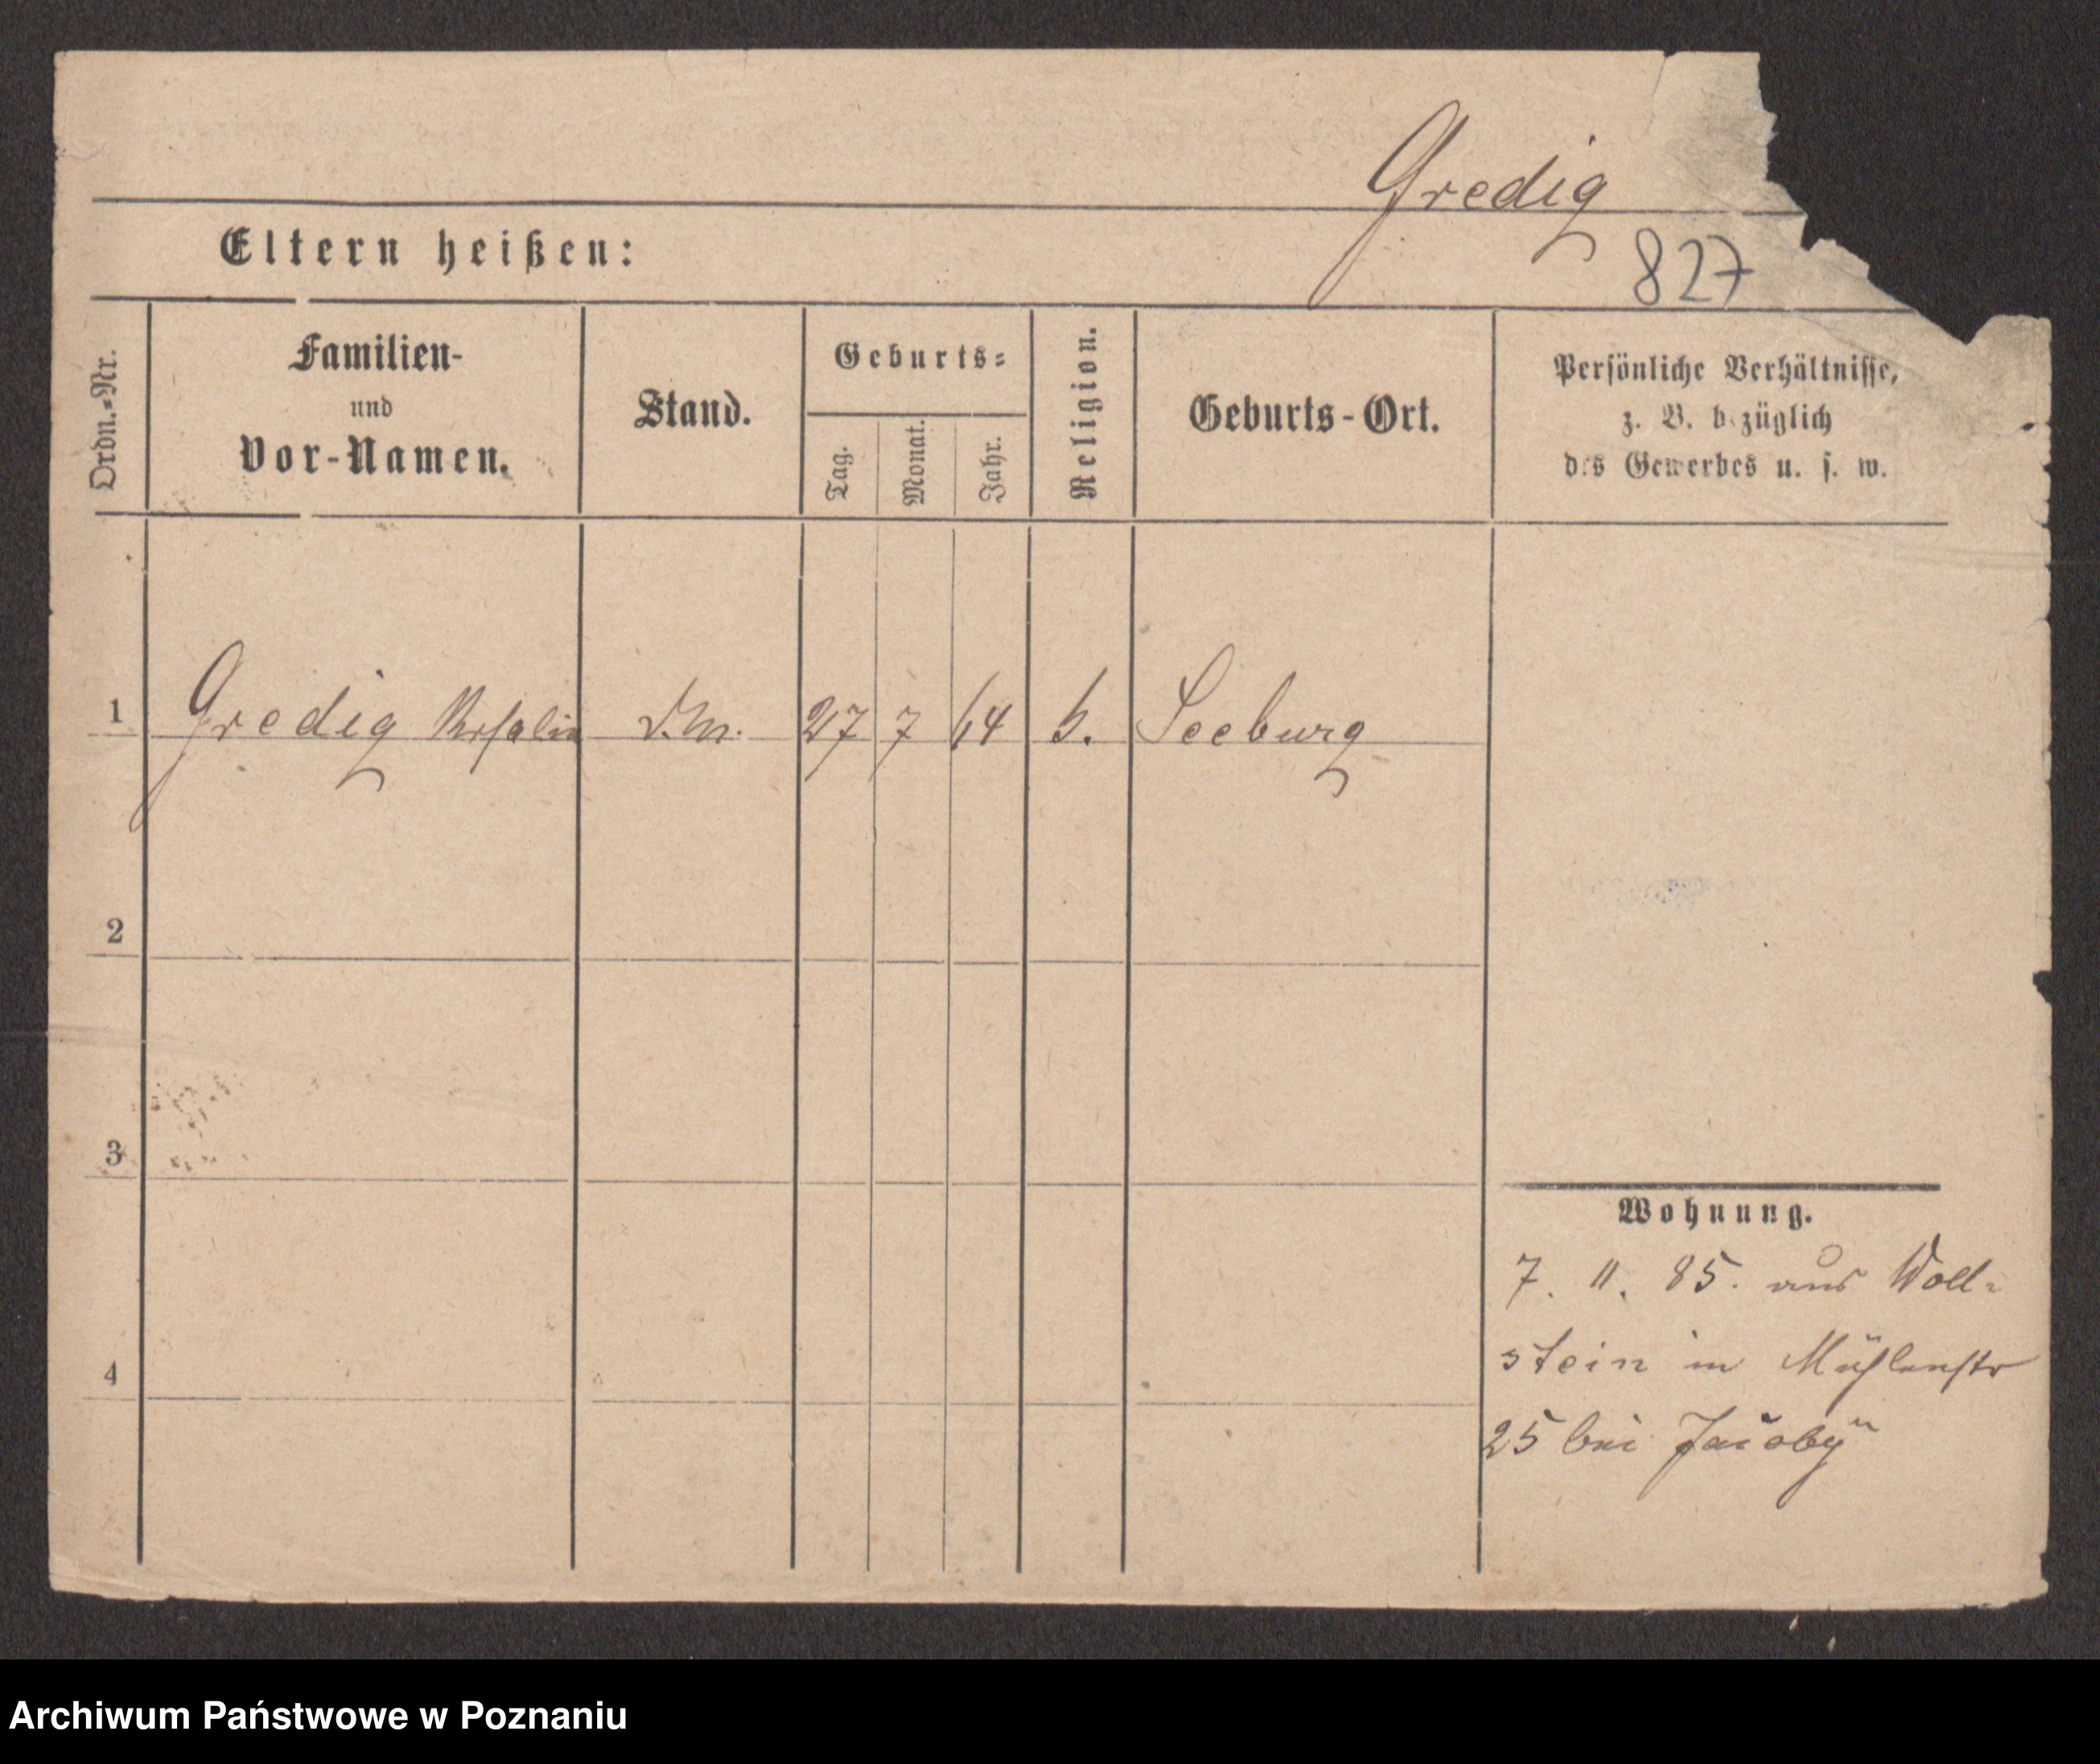 Gredig
Eltern heißen:
827
Ordn.-Nr.
Familien-
und
Vor-Namen.
Stand.
Geburts-
Tag.
Monat.
Jahr.
Religion.
Geburts-Ort.
Persönliche Verhältnisse,
z. B. bezüglich
des Gewerbes u. s. w.
1 Gredig Rosalie 27 7 64 Seeburg
2
3
4
Wohnung.
7. 11. 85. aus Woll-
stein in Mühlenstr
25 bei Jacoby
Archiwum Państwowe w Poznaniu